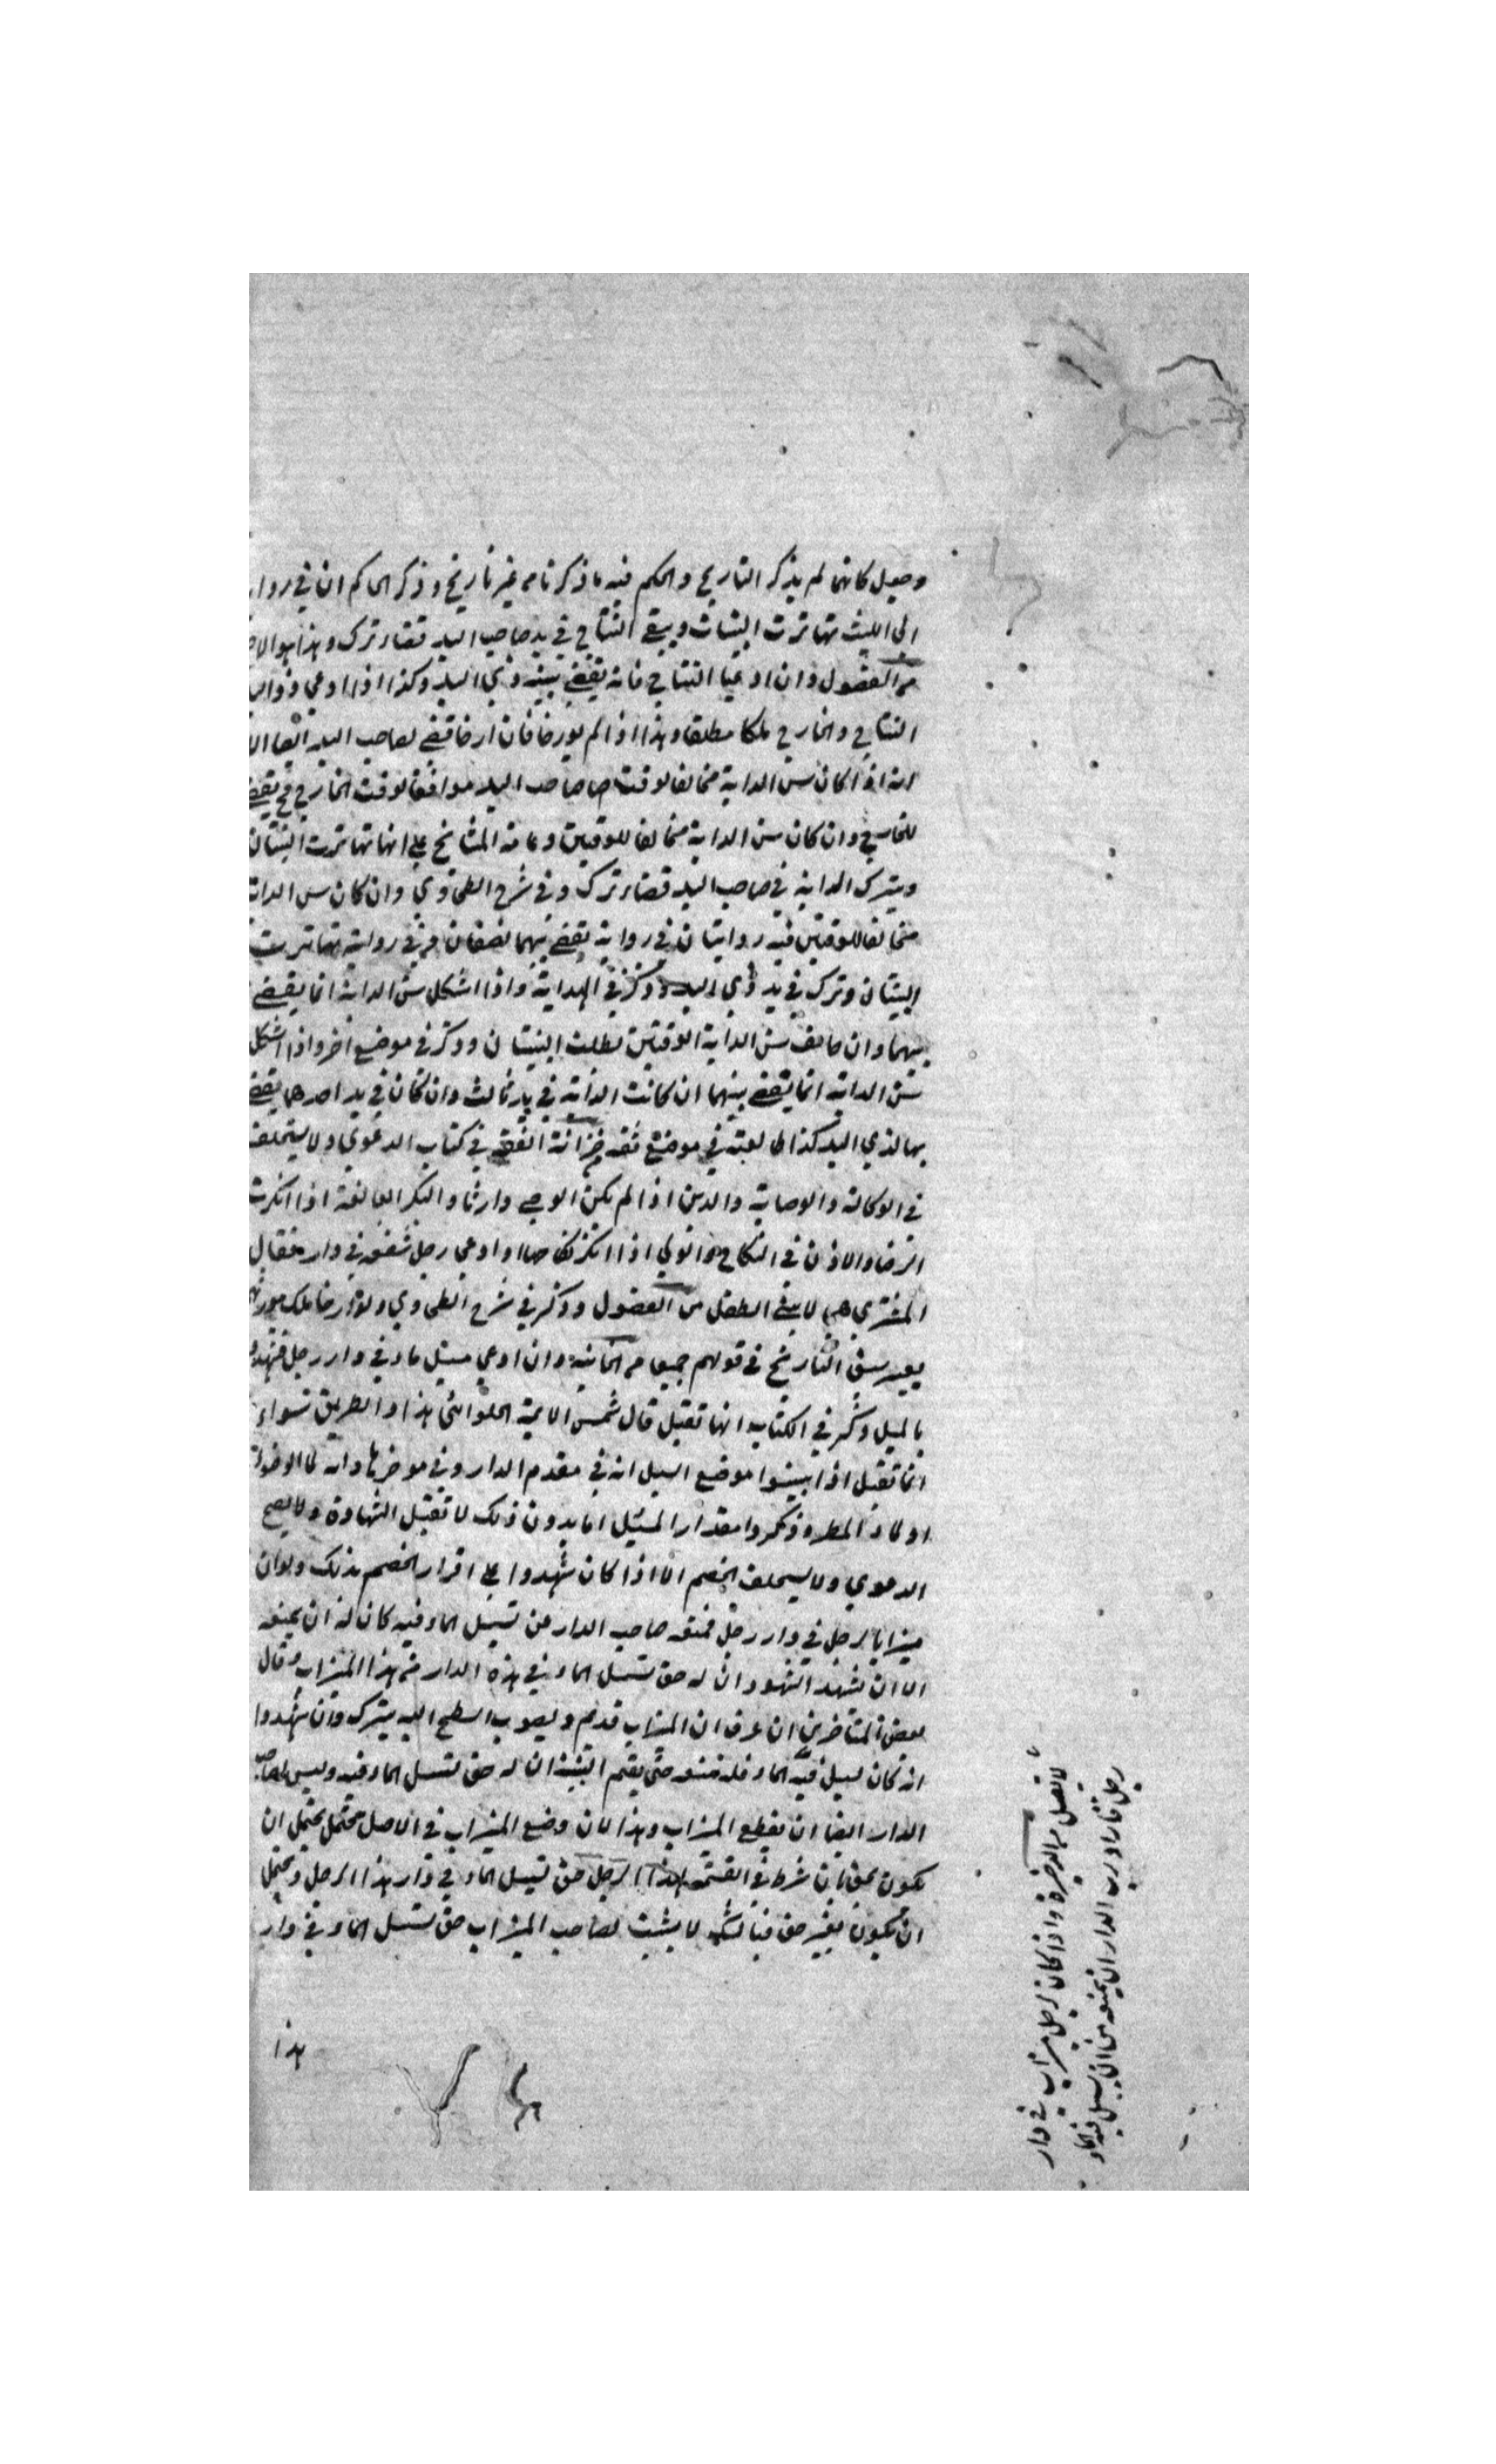 وجعل كانهما لم يذكر التاريخ والحكم فيه ما ذكرنا من غير تاريخ وذكر الحاكم ان في روا
ابي الليث تهاترت البينات ويبقى النتاج في يد صاحب اليد قضاء ترك وهذا هو الا
من الفصول وان ادعيا النتاج فانه يقضى ببينة ذي اليد وكذا اذا ادعى ذو اليد
النتاج والخارج ملكا مطلقا وهذا اذا لم يورخا فان ارخا قضى لصاحب اليد ايضا الا
انه اذا كان سن الدابة مخالفا لوقت صاحب اليد موافقا لوقت الخارج فح يقضى
للخارج وان كان سن الدابة مخالفا للوقتين وعامة المشايخ على انها تهاترت البينتان
ويترك الدابة في صاحب اليد قضاء ترك وفي شرح الطحاوي وان كان سن الدابة
مخالفا للوقتين فيه روايتان في رواية يقضى بينهما نصفان وفي رواية تهاترت
البينتان وترك في يد ذي اليد وذكر في الهداية واذا اشكل سن الدابة انما يقضى
بينهما وان خالف سن الدابة الوقتين بطلت البينتان وذكر في موضع اخر واذا اشكل
سن الدابة انما يقضى بينهما ان كانت الدابة في يد ثالث وان كان في يد احدهما يقضى
بها لذي اليد كذا في موضع ثقة من خزانة الفقه في كتاب الدعوى ولا يستحلف
في الوكالة والوصاية والدين اذا لم يكن الوصي وارثا والبكر البالغة اذا انكرت
الرضا والاذن في النكاح والولي اذا انكر نكاحها او ادعى رجل شفعة في دار فقال
المشتري هي لابني الطفل من الفصول وذكر في شرح الطحاوي ولو ارخا ملك مورثهما
يعتبر سبق التاريخ في قولهم جميعا من الخانية وان ادعى مسيل ماء في دار رجل فشهدوا
بالمسيل وذكر في الكتاب انها تقبل قال شمس الايمة الحلوائي هذا والطريق سواء
انما تقبل اذا بينوا موضع المسيل انه في مقدم الدار وفي موخرها وانه لماء الوضوء
او لماء المطر وذكروا مقدار المسيل اما بدون ذلك لا تقبل الشهادة ولا يصح
الدعوى ولا يستحلف الخصم الا اذا كان شهدوا على اقرار الخصم بذلك ولو ان
ميزابا لرجل في دار رجل فمنعه صاحب الدار من تسييل الماء فيه كان له ان يمنعه
الا ان يشهد الشهود ان له حق تسييل الماء في هذه الدار من هذا الميزاب وقال
بعض المتاخرين ان عرف ان الميزاب قديم وتصويب السطح اليه يترك وان شهدوا
انه كان يسيل فيه الماء فله منعه حتى يقيم البينة ان له حق تسييل الماء فيه وليس لصاحب
الدار ايضا ان يقطع الميزاب وهذا لان وضع الميزاب في الاصل محتمل يحتمل ان
يكون بحق بان شرط في القسمة لهذا الرجل حق تسييل الماء في دار هذا الرجل ويحتمل
ان يكون بغير حق فبالشك لا يثبت لصاحب الميزاب حق تسييل الماء في دار
هذا
لا تقبل من الذخيرة واذا كان لرجل ميزاب في دار
رجل فاراد رب الدار ان يمنعه من ان يسيل فيه الماء